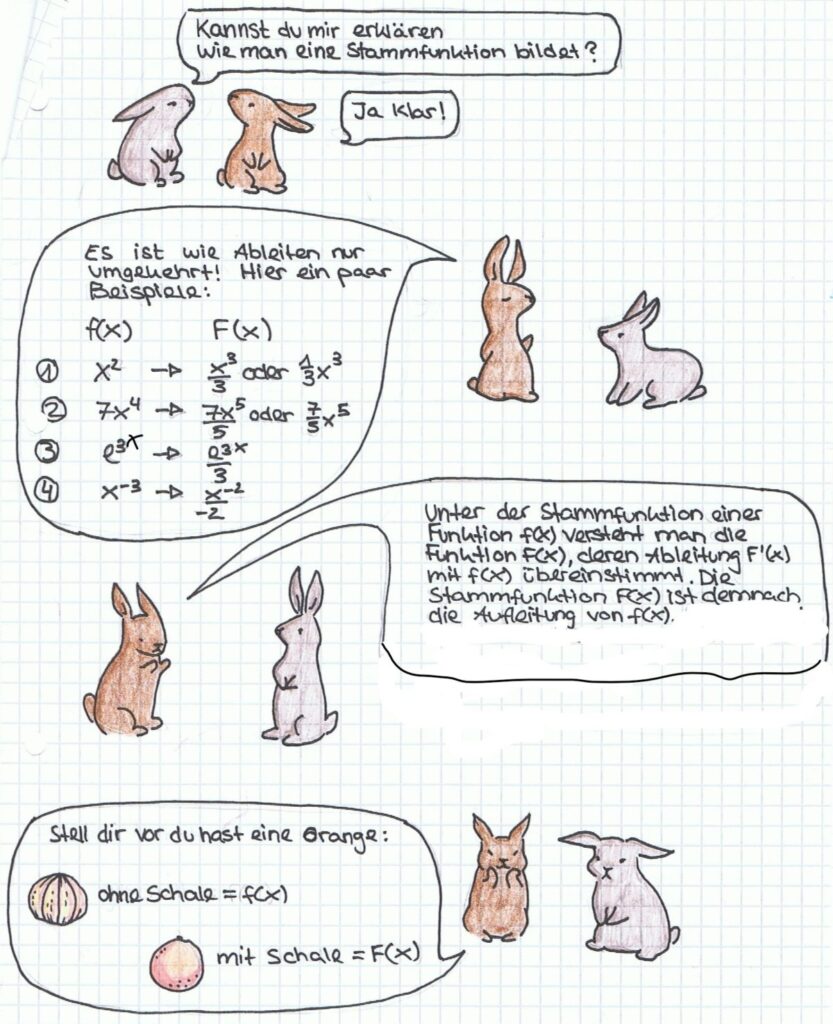 Kannst du mir erklären
wie man eine Stammfunktion bildet?
Ja klar!
Es ist wie Ableiten nur
umgekehrt! Hier ein paar
Beispiele:
f(x) F(x)
① x² → x³/3 oder 1/3 x³
② 7x⁴ → 7x⁵/5 oder 7/5 x⁵
③ e³ˣ → e³ˣ/3
④ x⁻³ → x⁻²/-2
Unter der Stammfunktion einer
Funktion f(x) versteht man die
Funktion F(x), deren Ableitung F'(x)
mit f(x) übereinstimmt. Die
Stammfunktion F(x) ist demnach
die Aufleitung von f(x).
Stell dir vor du hast eine Orange:
ohne Schale = f(x)
mit Schale = F(x)